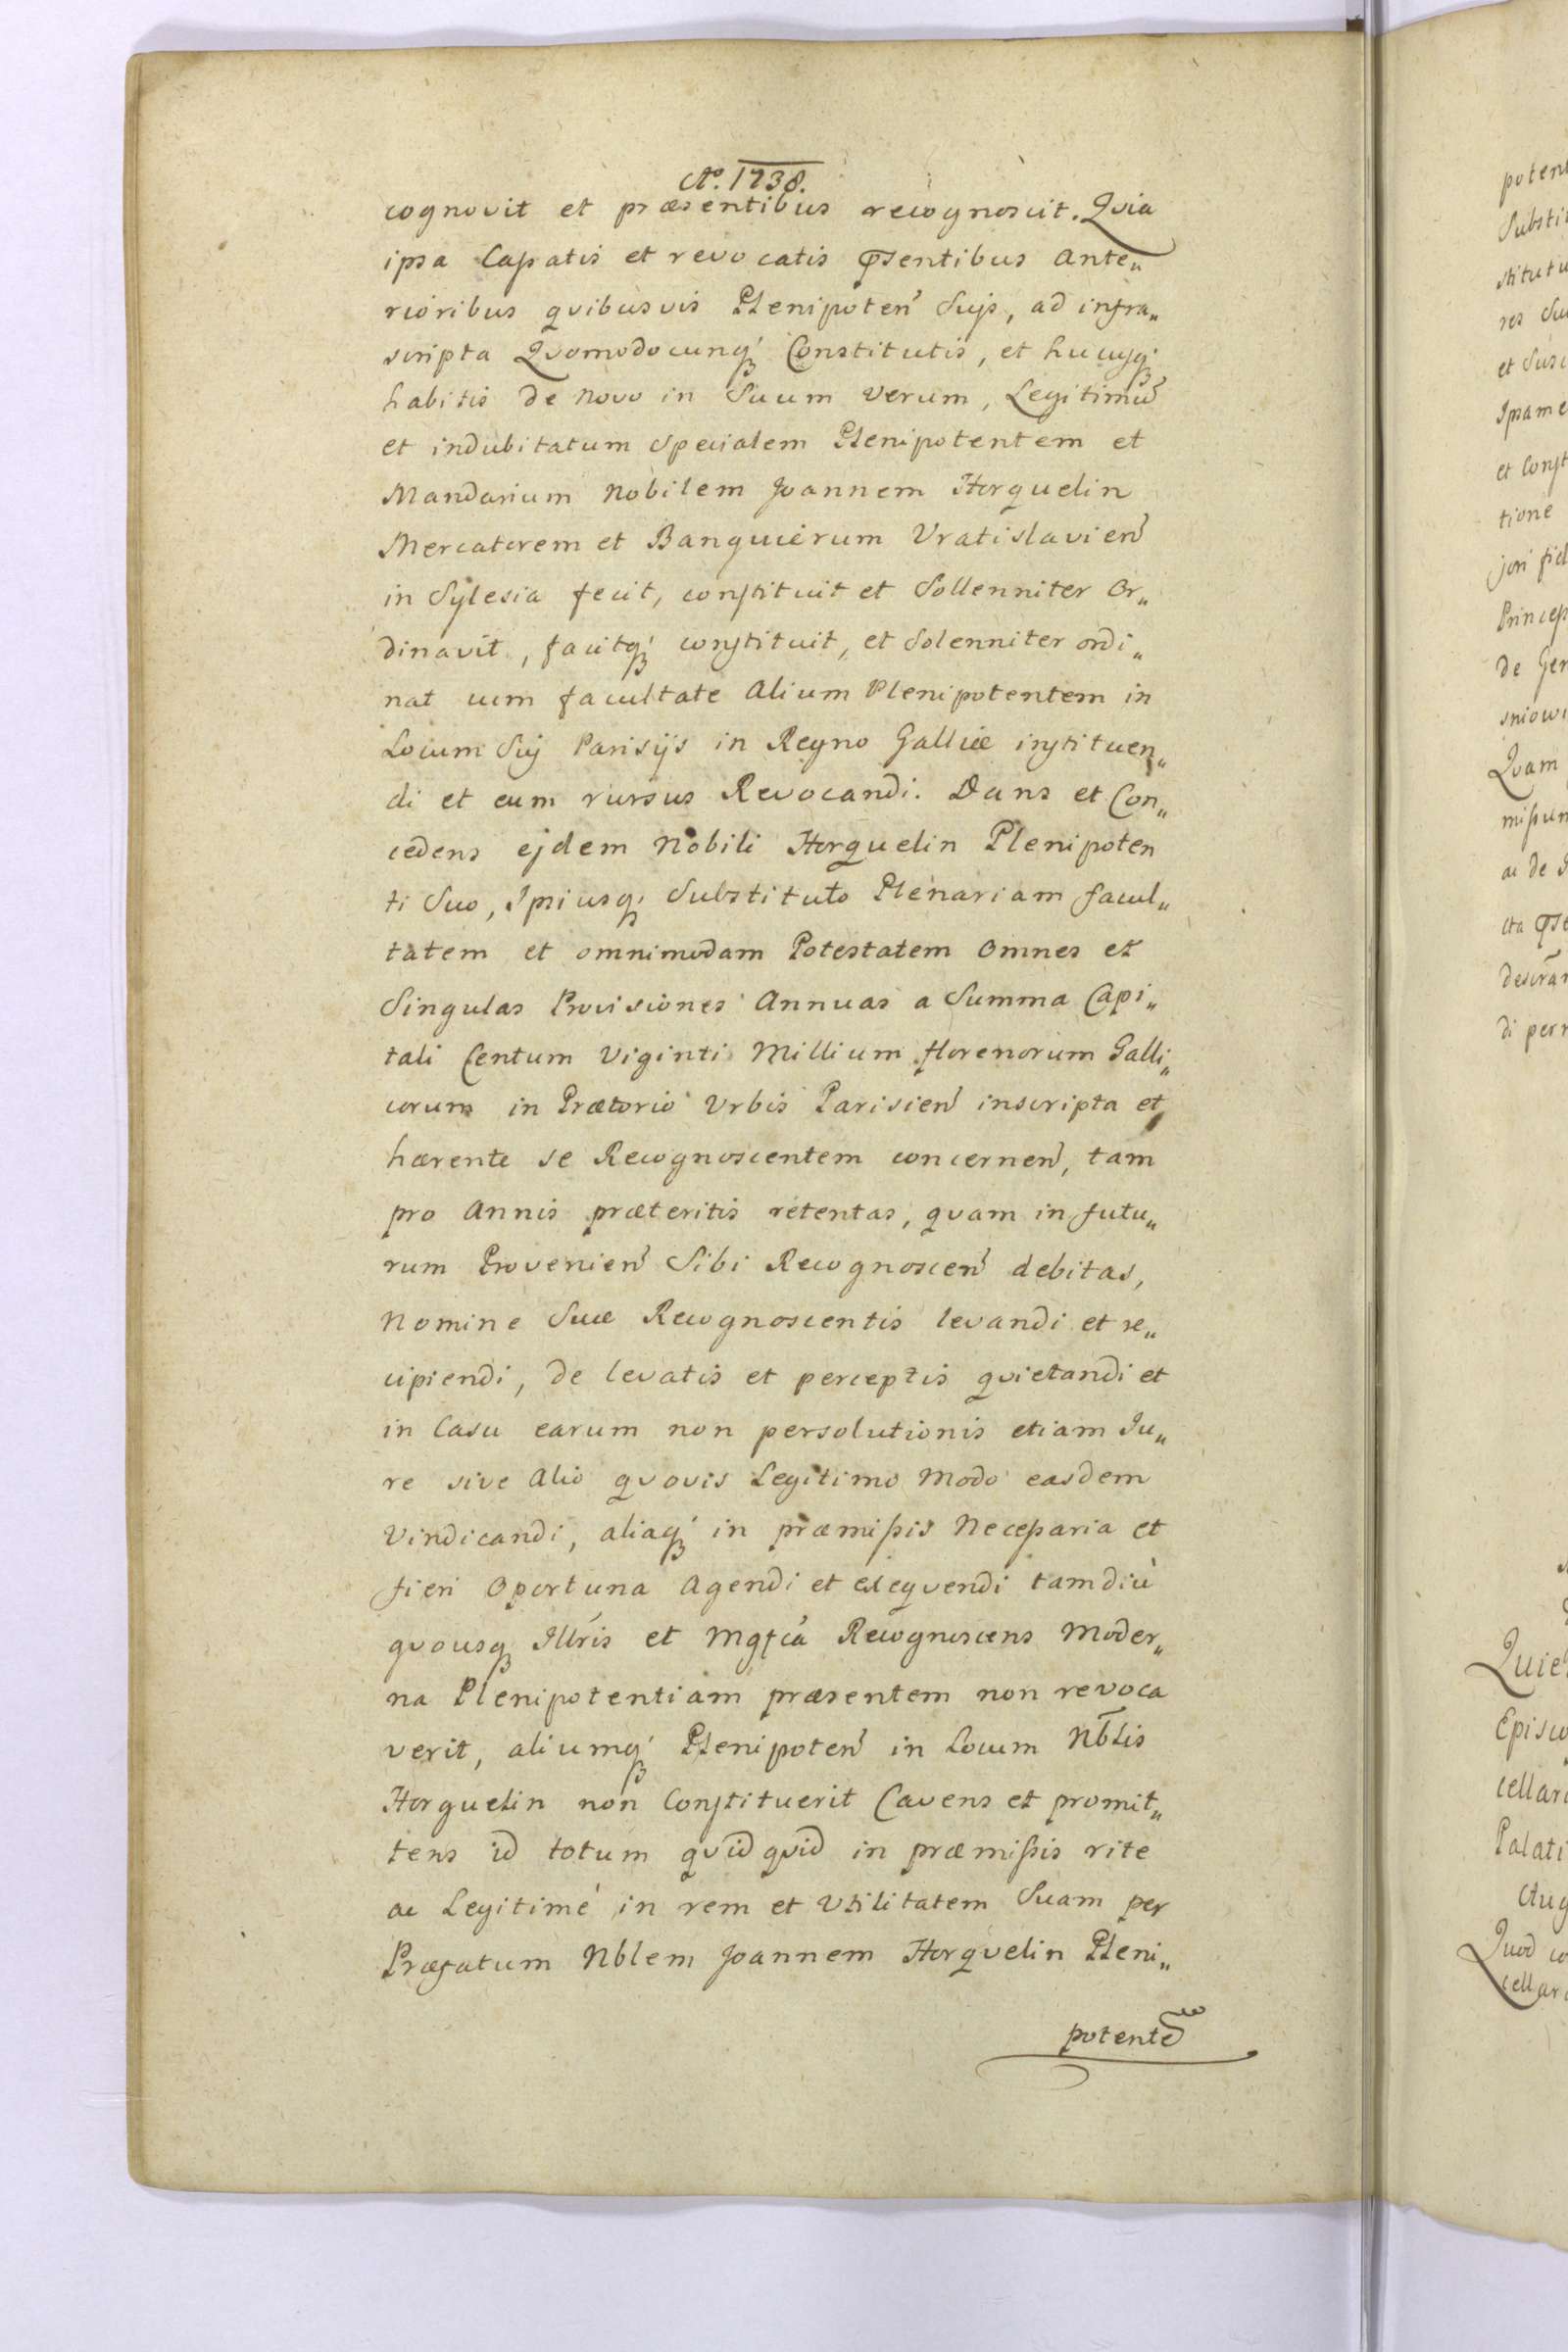 Aº. 1738.
cognovit et præsentibus recognoscit. Qvia
ipsa Cassatis et revocatis pñsentibus Ante„
rioribus qvibusvis Plenipoten̄ Suis, ad infra„
scripta Qvomodocunq; Constitutis, et hucusq;
habitis de Novo in Suum Verum, Legitimū
et indubitatum Specialem Plenipotentem et
Mandarium Nobilem Joannem Horquelin
Mercatorem et Banquierum Vratislavien̄
in Sylesia fecit, constituit et Sollenniter Or„
dinavit, facitq; constituit, et Solenniter ordi„
nat cum facultate Alium Plenipotentem in
Locum Sui Parisijs in Regno Galliæ instituen„
di et eum rursus Revocandi. Dans et Con„
cedens ejdem Nobili Horquelin Plenipoten
ti Suo, Ipsiusq; Substituto Plenariam facul„
tatem et omnimodam Potestatem Omnes et
Singulas Provisiones Annuas a Summa Capi„
tali Centum Viginti Millium florenorum Galli„
corum in Prætorio Vrbis Parisien̄ inscripta et
hærente se Recognoscentem concernen̄, tam
pro Annis præteritis retentas, quam in futu„
rum Provenien̄ Sibi Recognoscen̄ debitas,
Nomine Suæ Recognoscentis levandi et re„
cipiendi, de levatis et perceptis qvietandi et
in Casu earum non persolutionis etiam Ju„
re sive Alio qvovis Legitimo Modo easdem
Vindicandi, aliaq; in præmissis Necessaria et
fieri Oportuna Agendi et exeqvendi tamdiù
qvousq; Illris et Mgfca Recognoscens Moder„
na Plenipotentiam præsentem non revoca
verit, aliumq; Plenipoten̄ in Locum Nblis
Horquelin non Constituerit Cavens et promit„
tens id totum qvidqvid in præmissis rite
ac Legitimè in rem et Vtilitatem Suam per
Præfatum Nblem Joannem Horqvelin Pleni„
potentē
poten
Substi
stitutu
res Su
et Susc
Ipsame
et Const
tione
jori fid
Princep
de Ger
sniowi
Qvam
missun
ac de
cta pñse
descrar
di perr
Quie
Episco
cellar
Palati
Aug
Quod co
cellar